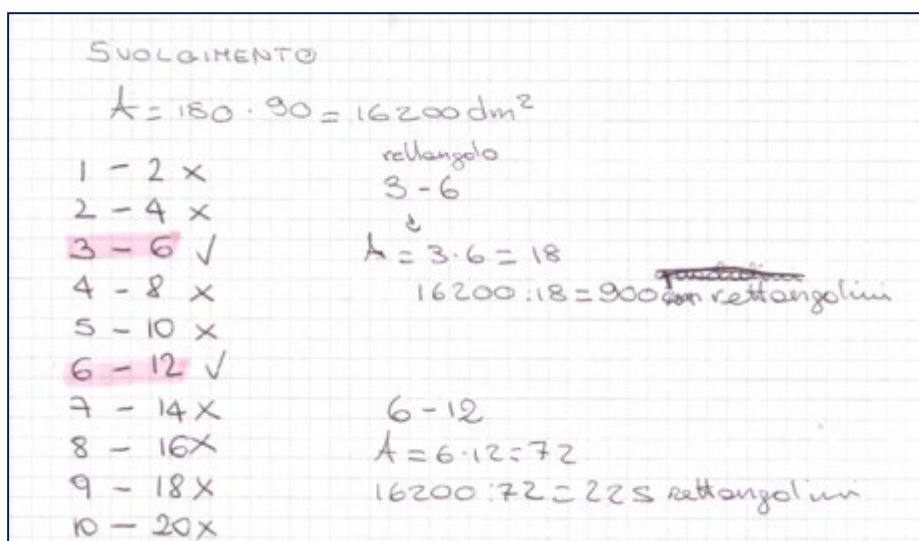 SVOLGIMENTO
A = 180 · 90 = 16200 dm²
1 - 2 x
2 - 4 x
3 - 6 ✓
4 - 8 x
5 - 10 x
6 - 12 ✓
7 - 14 x
8 - 16 x
9 - 18 x
10 - 20 x
rettangolo
3 - 6
↓
A = 3 · 6 = 18
16200 : 18 = 900 rettangolini
6 - 12
A = 6 · 12 = 72
16200 : 72 = 225 rettangolini